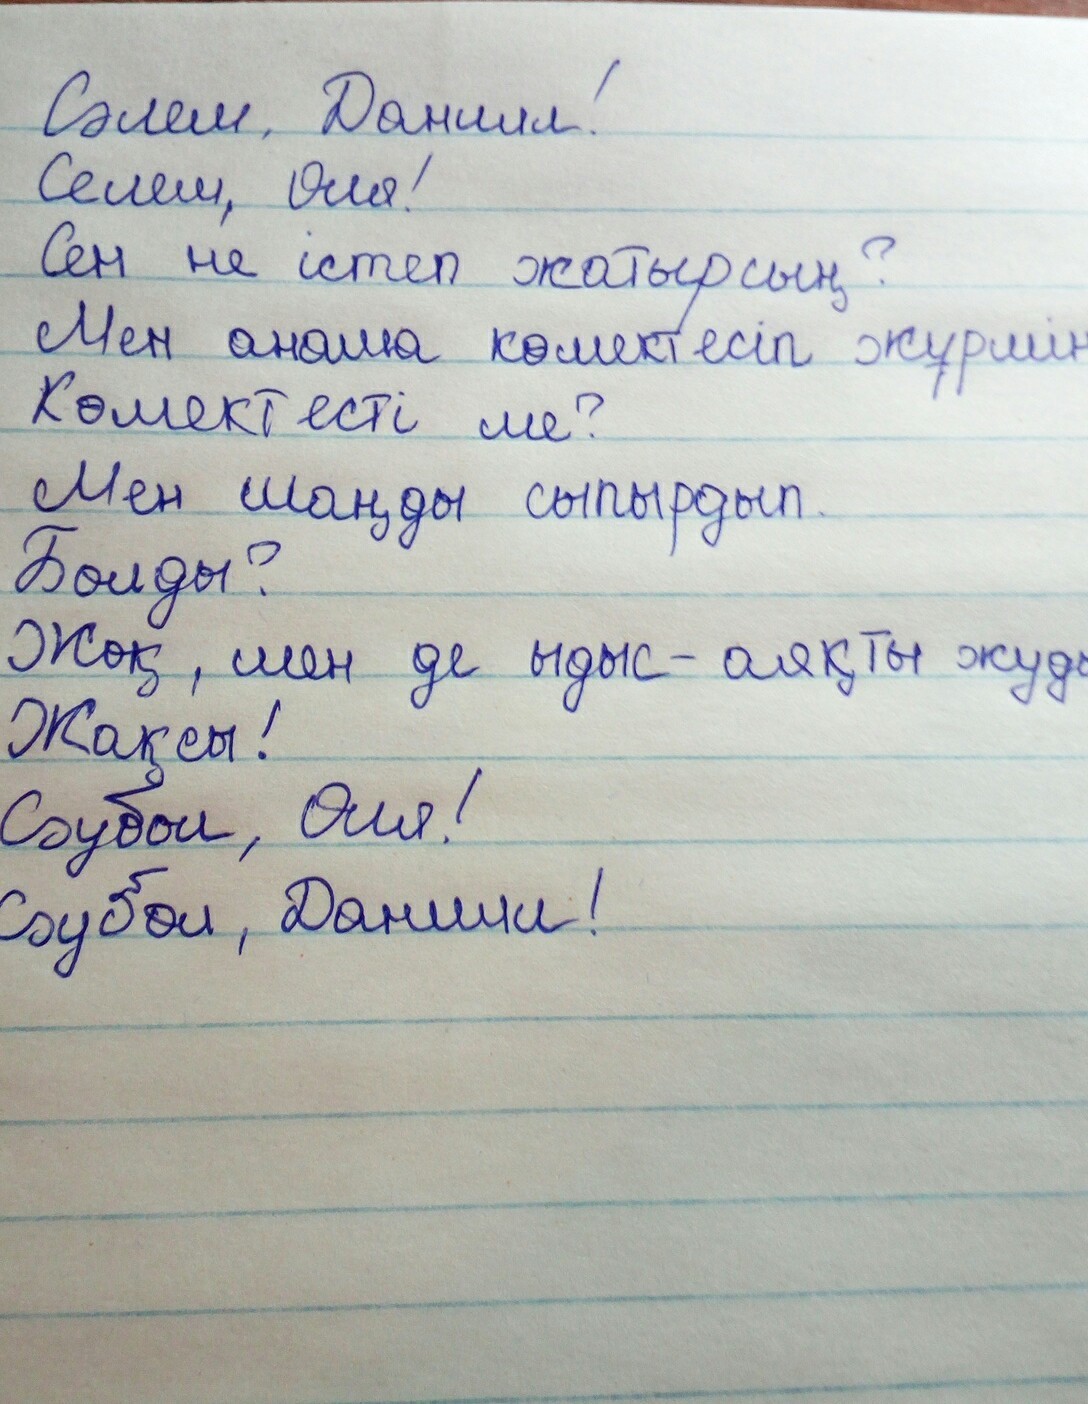 Сәлем, Даниил!
Селем, Оля!
Сен не істеп жатырсың?
Мен анаша көмектесіп жұрмін
Көмектесті ме?
Мен шаңды сыпырдып.
Болды?
Жоқ, мен де ыдыс-аяқты
Жақсы!
Сәубол, Оля!
Сәубол, Даниил!